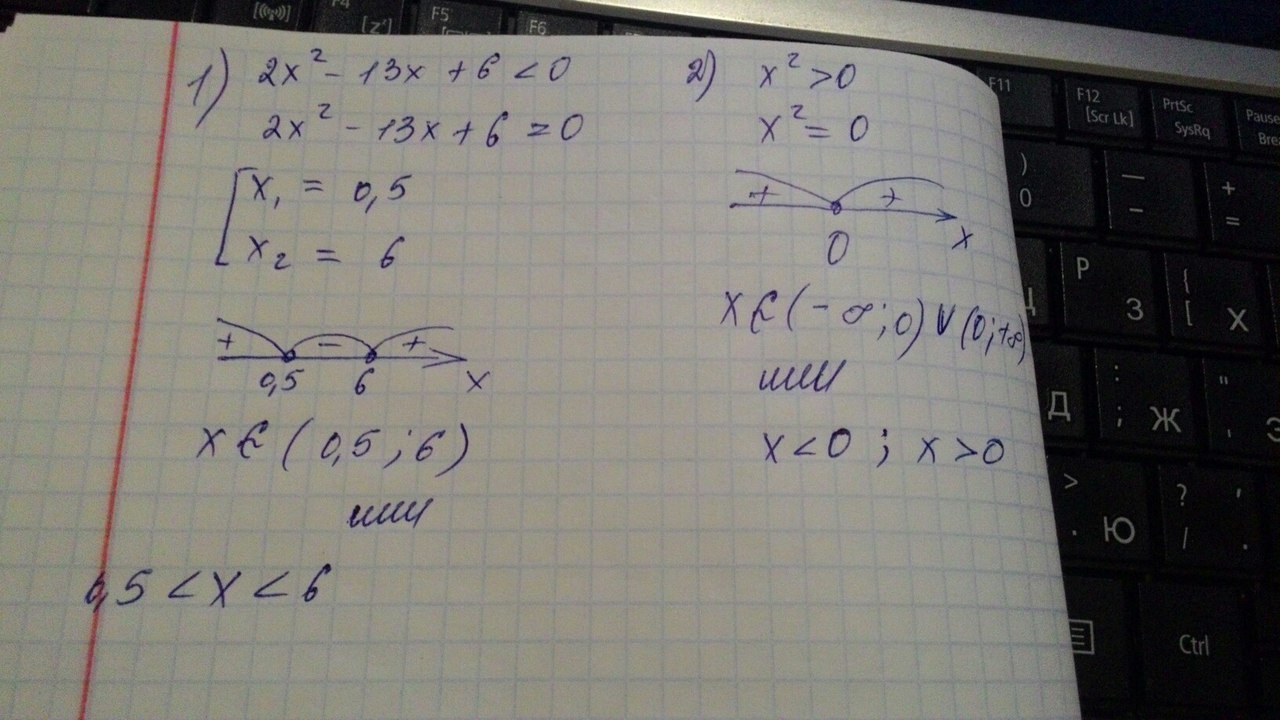 1) 2x² - 13x + 6 < 0
2x² - 13x + 6 = 0
x₁ = 0,5
x₂ = 6
+ - +
0,5 6 x
x ∈ (0,5; 6)
или
0,5 < x < 6
2) x² > 0
x² = 0
+ +
0 x
x ∈ (-∞; 0) ∪ (0; +∞)
или
x < 0 ; x > 0
F4
[Z']
F5
F6
F11
F12
[Scr Lk]
PrtSc
SysRq
Pause
)
0
—
-
+
=
Р
З
{
[ Х
Д
:
; Ж
"
'
>
. Ю
?
/
,
.
Ctrl